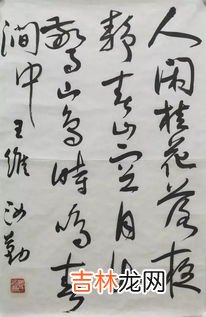 人闲桂花落夜
静春山空月出
驚山鸟时鸣春
涧中 王维
吉林龙网